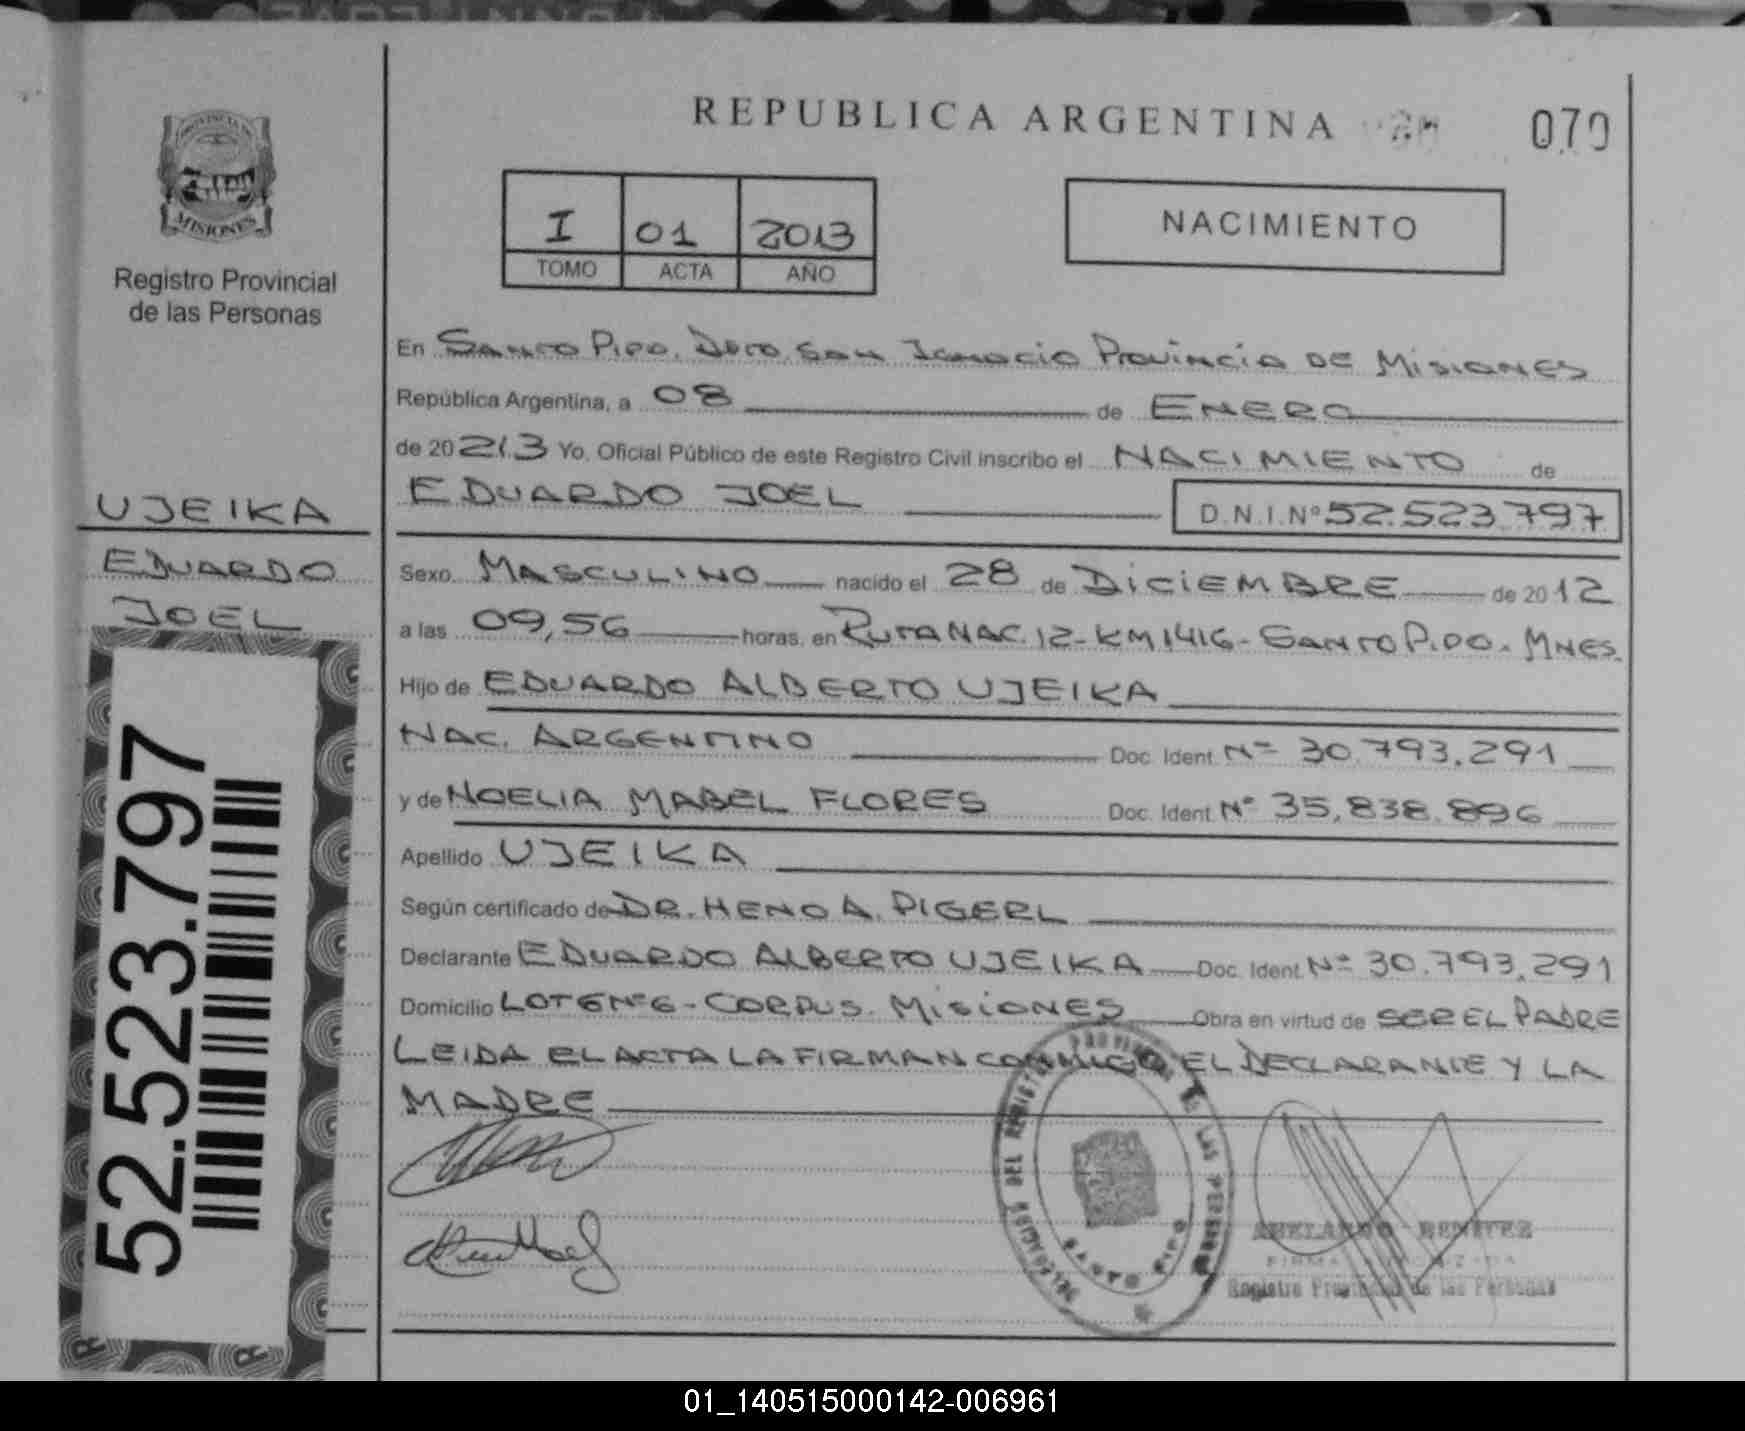 REPUBLICA ARGENTINA
070
PROVINCIA DE
MISIONES
Registro Provincial
de las Personas
I 01 2013
TOMO ACTA AÑO
NACIMIENTO
En SANTO PIPO. DPTO. SAN IGNACIO PROVINCIA DE MISIONES
República Argentina, a 08 de ENERO
de 20 213 Yo, Oficial Público de este Registro Civil inscribo el NACIMIENTO de
EDUARDO JOEL D.N.I.Nº 52.523.797
UJEIKA
EDUARDO
JOEL
52.523.797
Sexo MASCULINO nacido el 28 de DICIEMBRE de 2012
a las 09,56 horas, en RUTA NAC. 12-KM1416-SANTO PIPO. MNES.
Hijo de EDUARDO ALBERTO UJEIKA
NAC. ARGENTINO Doc. Ident. Nº 30.793.291
y de NOELIA MABEL FLORES Doc. Ident. Nº 35.838.896
Apellido UJEIKA
Según certificado de DR. HENO A. PIGERL
Declarante EDUARDO ALBERTO UJEIKA Doc. Ident. Nº 30.793.291
Domicilio LOTE Nº 6-CORPUS. MISIONES Obra en virtud de SER EL PADRE
LEIDA EL ACTA LA FIRMAN CONMIGO EL DECLARANTE Y LA
MADRE
SANTO PIPO
ABELARDO BENITEZ
Registro Provincial de las Personas
01_140515000142-006961